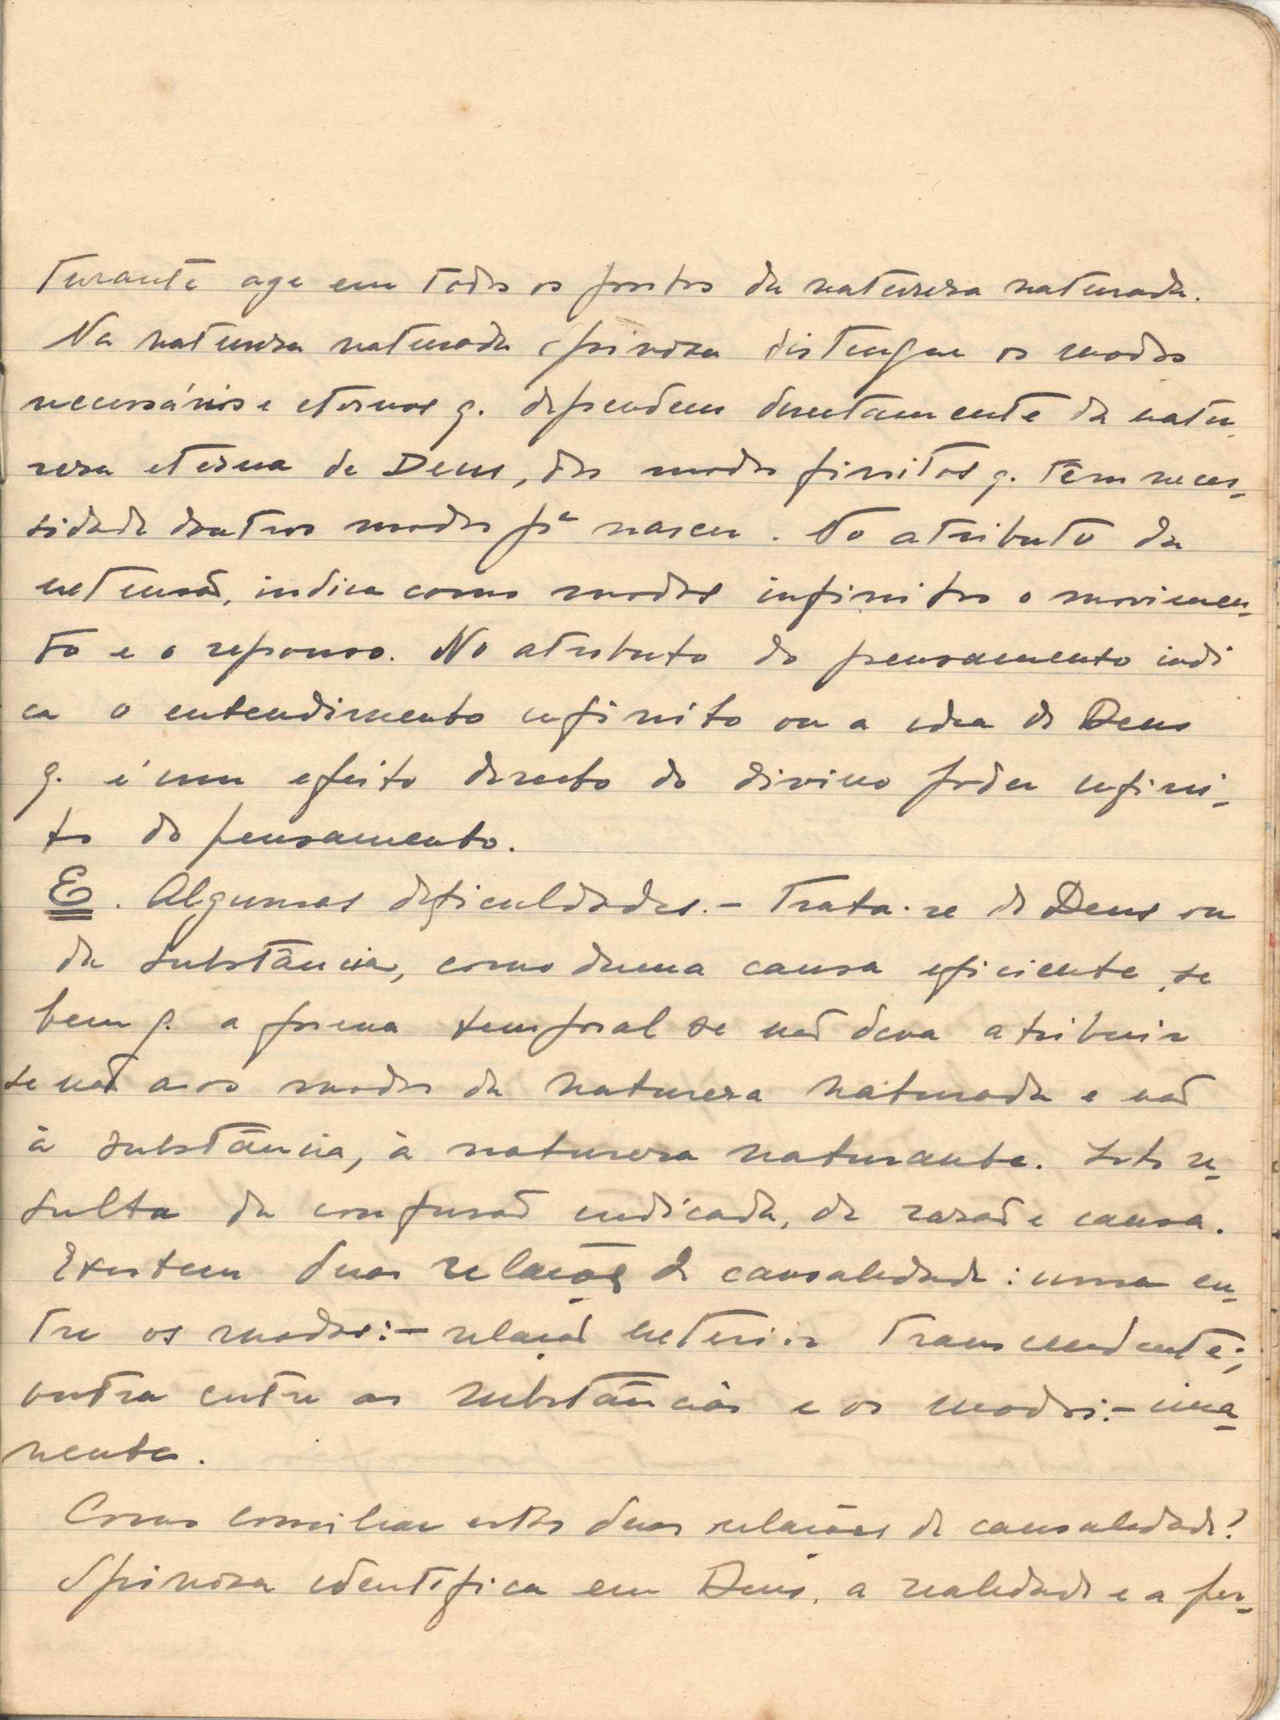 turante age em todos os pontos da natureza naturada.
Na natureza naturada Spinoza distingue os modos
necessários e eternos q. dependem directamente da natu-
reza eterna de Deus, dos modos finitos q. têm neces-
sidade doutros modos pª nascer. No atributo da
extensão, indica como modos infinitos o movimen-
to e o repouso. No atributo do pensamento indi
ca o entendimento infinito ou a idea de Deus
q. é um efeito directo do divino poder infini-
to do pensamento.
E. Algumas dificuldades. - Trata-se de Deus ou
da substância, como duma causa eficiente, se
bem q. a forma temporal se não deva atribuir
se não aos modos da natureza naturada e não
à substância, à natureza naturante. Isto re-
sulta da confusão indicada, de razão e causa.
Existem duas relações de causalidade: uma en-
tre os modos: - relação exterior transcendente;
outra entre as substâncias e os modos: - ima-
nente.
Como conciliar estas duas relações de causalidade?
Spinoza identifica em Deus, a realidade e a per-